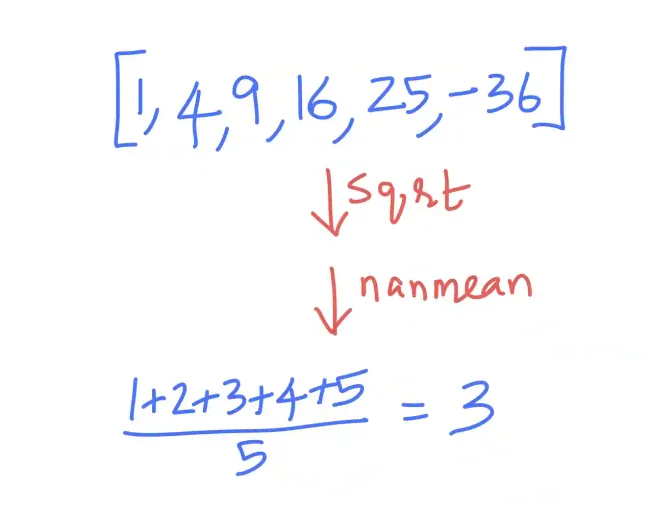 [1, 4, 9, 16, 25, -36]
↓ sqrt
↓ nanmean
1+2+3+4+5
5
= 3